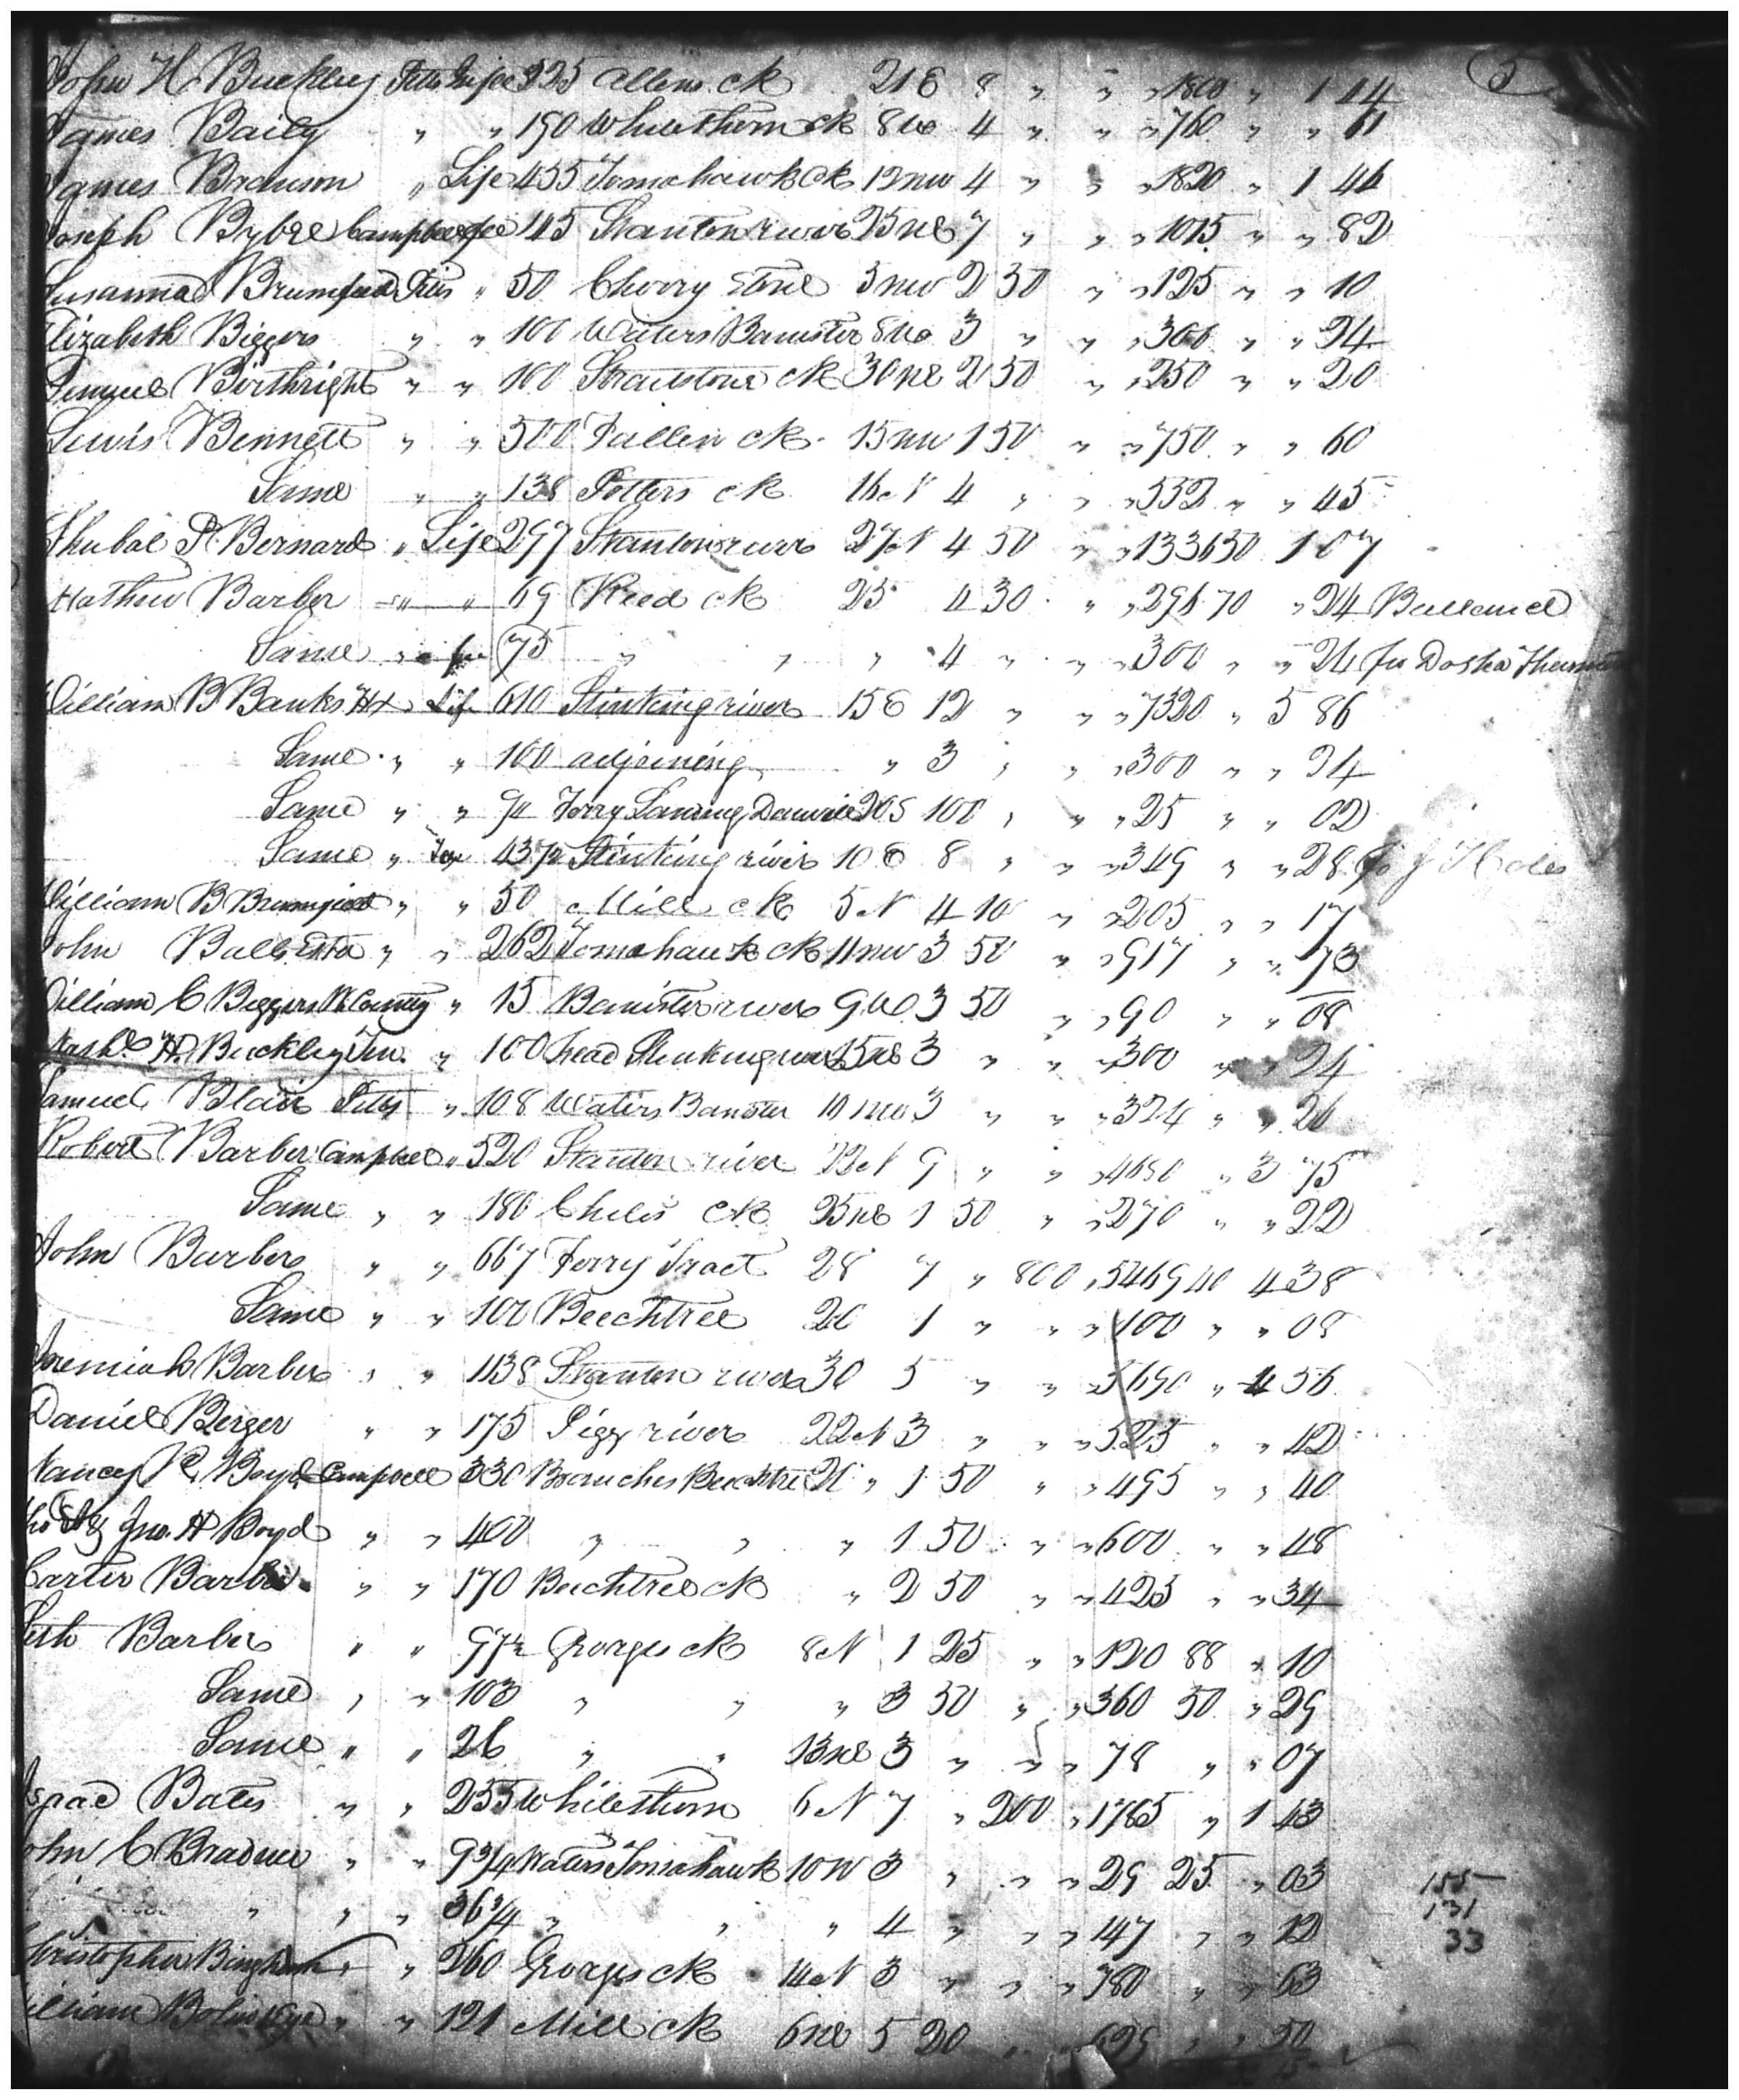 5
John H Buckley Pitts Life 225 Allens ck 21 E 8 " " " 1800 " 1 44
James Baily " " 190 Whitethorn ck 8 W 4 " " " 760 " " 61
James Bronson " Life 455 Tomahawk ck 12 NW 4 " " " 1820 " 1 46
Joseph Bybee Campbell fee 145 Stanton river 25 NE 7 " " " 1015 " " 82
Susanna Brumfield Pitts " 50 Cherry Stone 3 NW 2 50 " " 125 " " 10
Elizabeth Biggers " " 100 Waters Banister 8 W 3 " " " 300 " " 24
Birthright " " 100 Straitstone ck 30 NE 2 50 " " 250 " " 20
Lewis Bennett " " 500 Fallen ck 15 NW 1 50 " " 750 " " 60
Same " " 138 Potters ck 16 N 4 " " " 552 " " 45
Shubal P Bernard " Life 297 Stanton river 27 N 4 50 " " 1336 50 1 07
Mathew Barber " " 69 Reed ck 25 4 30 " " 296 70 " 24
Same " fee 75 " " " 4 " " " 300 " " 24 fr Dosha
William B Banks Hx " Life 610 Stinking river 15 E 12 " " " 7320 " 5 86
Same " " 100 adjoining " 3 " " " 300 " " 24
Same " " 1/4 Ferry Landing Danville 20 S 100 " " " 25 " " 02
Same " fee 43 1/2 Stinking river 10 E 8 " " " 349 " " 28
William B Brumfield " " 50 Mill ck 5 N 4 10 " " 205 " " 17
John Ball Esta " " 262 Tomahawk ck 11 NW 3 50 " " 917 " " 73
William C Biggers " 15 Banister river 9 W 3 50 " " 90 " " 08
H. Buckley Jun. " 100 head Stinking river 15 NE 3 " " " 300 " " 24
Samuel Blair Pitts " 108 Waters Banister 10 NW 3 " " " 324 " " 26
Robert Barber Campbell " 520 Stanton river 22 N 9 " " " 4680 " 3 75
Same " " 180 Chiles ck 25 NE 1 50 " " 270 " " 22
John Barber " " 667 Ferry Tract 28 7 " 800 " 5469 40 4 38
Same " " 100 Beechtree 26 1 " " " 100 " " 08
Jeremiah Barber " " 1138 Stanton river 30 5 " " " 5690 " 4 56
Daniel Berger " " 175 Pigg river 22 N 3 " " " 525 " " 42
Nancy R. Boyd Campbell 330 Branches Beechtree 26 " 1 50 " " 495 " " 40
Jno. H Boyd " " 400 " " " 1 50 " " 600 " " 48
Carter Barber " " 170 Beechtree ck " 2 50 " " 425 " " 34
Seth Barber " " 97 1/2 Georges ck 8 N 1 25 " " 120 88 " 10
Same " " 103 " " " 3 50 " " 360 50 " 29
Same " " 26 " " 13 NE 3 " " " 78 " " 07
Isaac Bates " " 255 Whitethorn 6 N 7 " 200 " 1785 " 1 43
John C Bradner " " 9 3/4 Waters Tomahawk 10 W 3 " " " 29 25 " 03
" " " 36 3/4 " " " 4 " " " 147 " " 12
Christopher Bingham " " 260 Georges ck 14 N 3 " " " 780 " " 63
William " " 121 Mill ck 6 NE 5 20 " " 629 " " 50
155
131
33